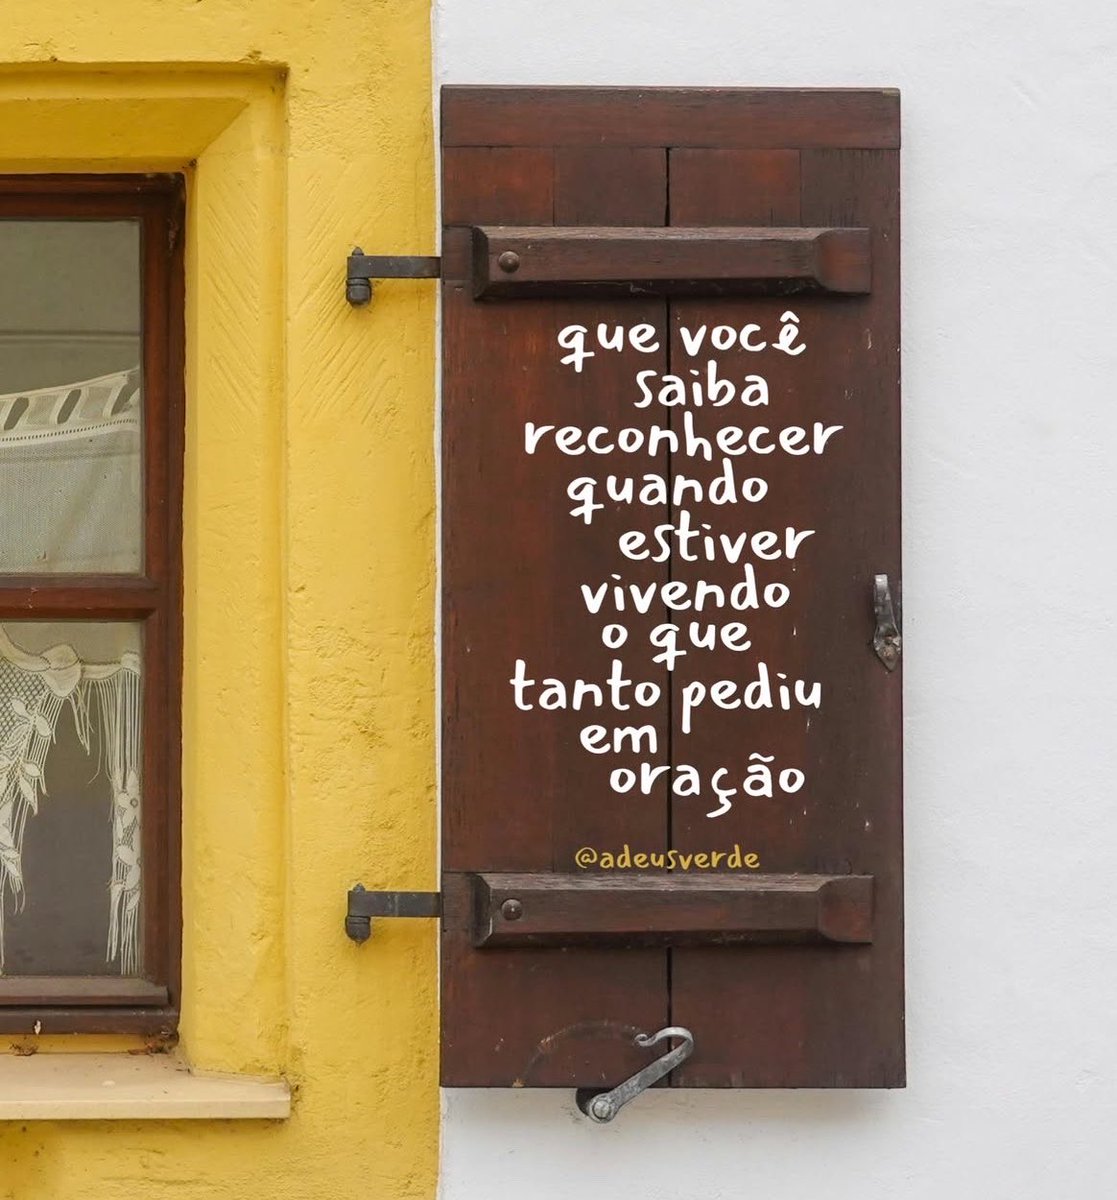 que você
saiba
reconhecer
quando
estiver
vivendo
o que
tanto pediu
em
oração
@adeusverde